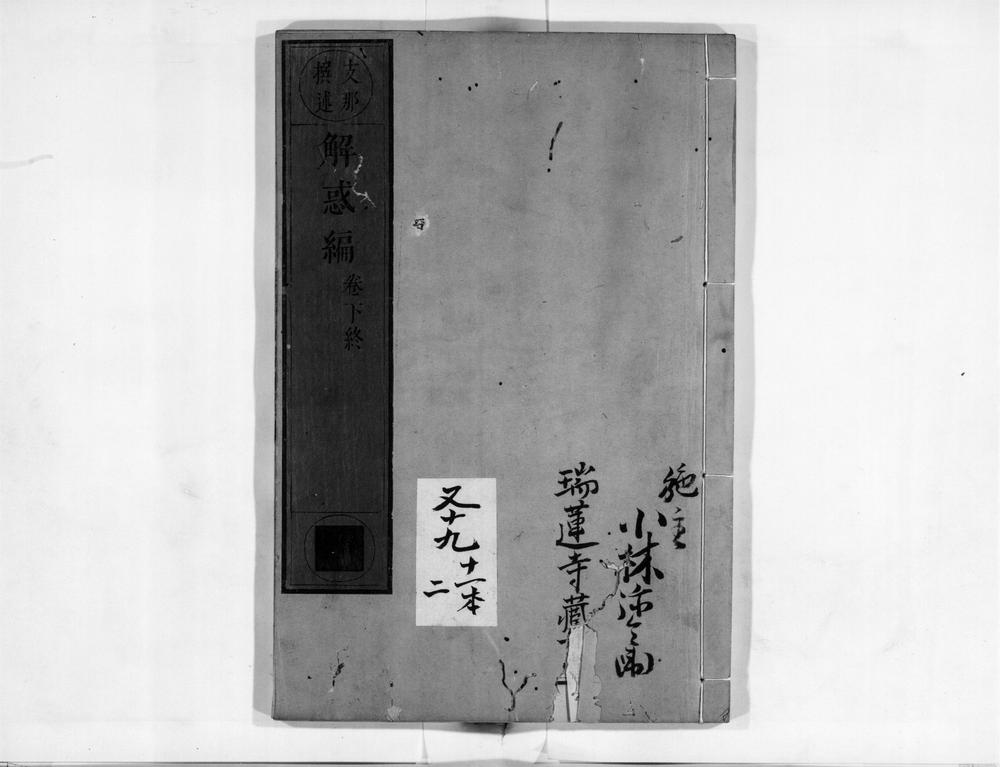 施主
小林
瑞蓮寺藏
又十九
十一本
二
支那
撰述
解惑編
卷下終